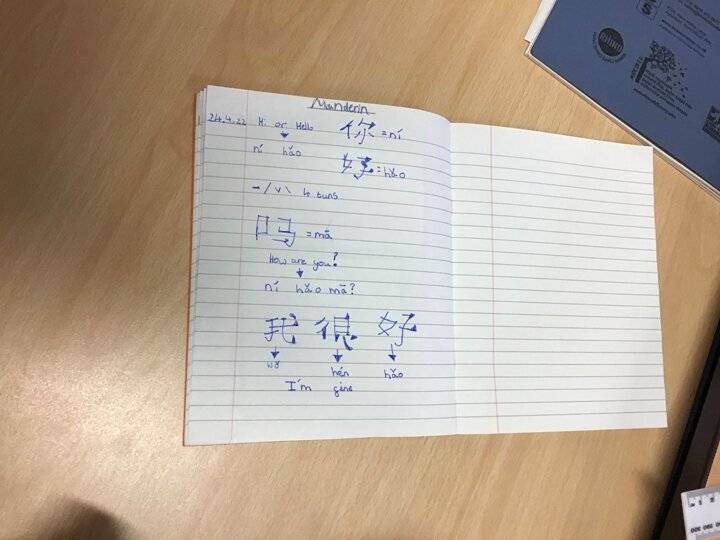 Manderin
24.4.22 Hi or Hello 你 = ní
ní hǎo
好 = hǎo
- / v \ 4 tuns
吗 = mā
How are you?
ní hǎo mā?
我 很 好
wǒ hěn hǎo
I'm
RHINO